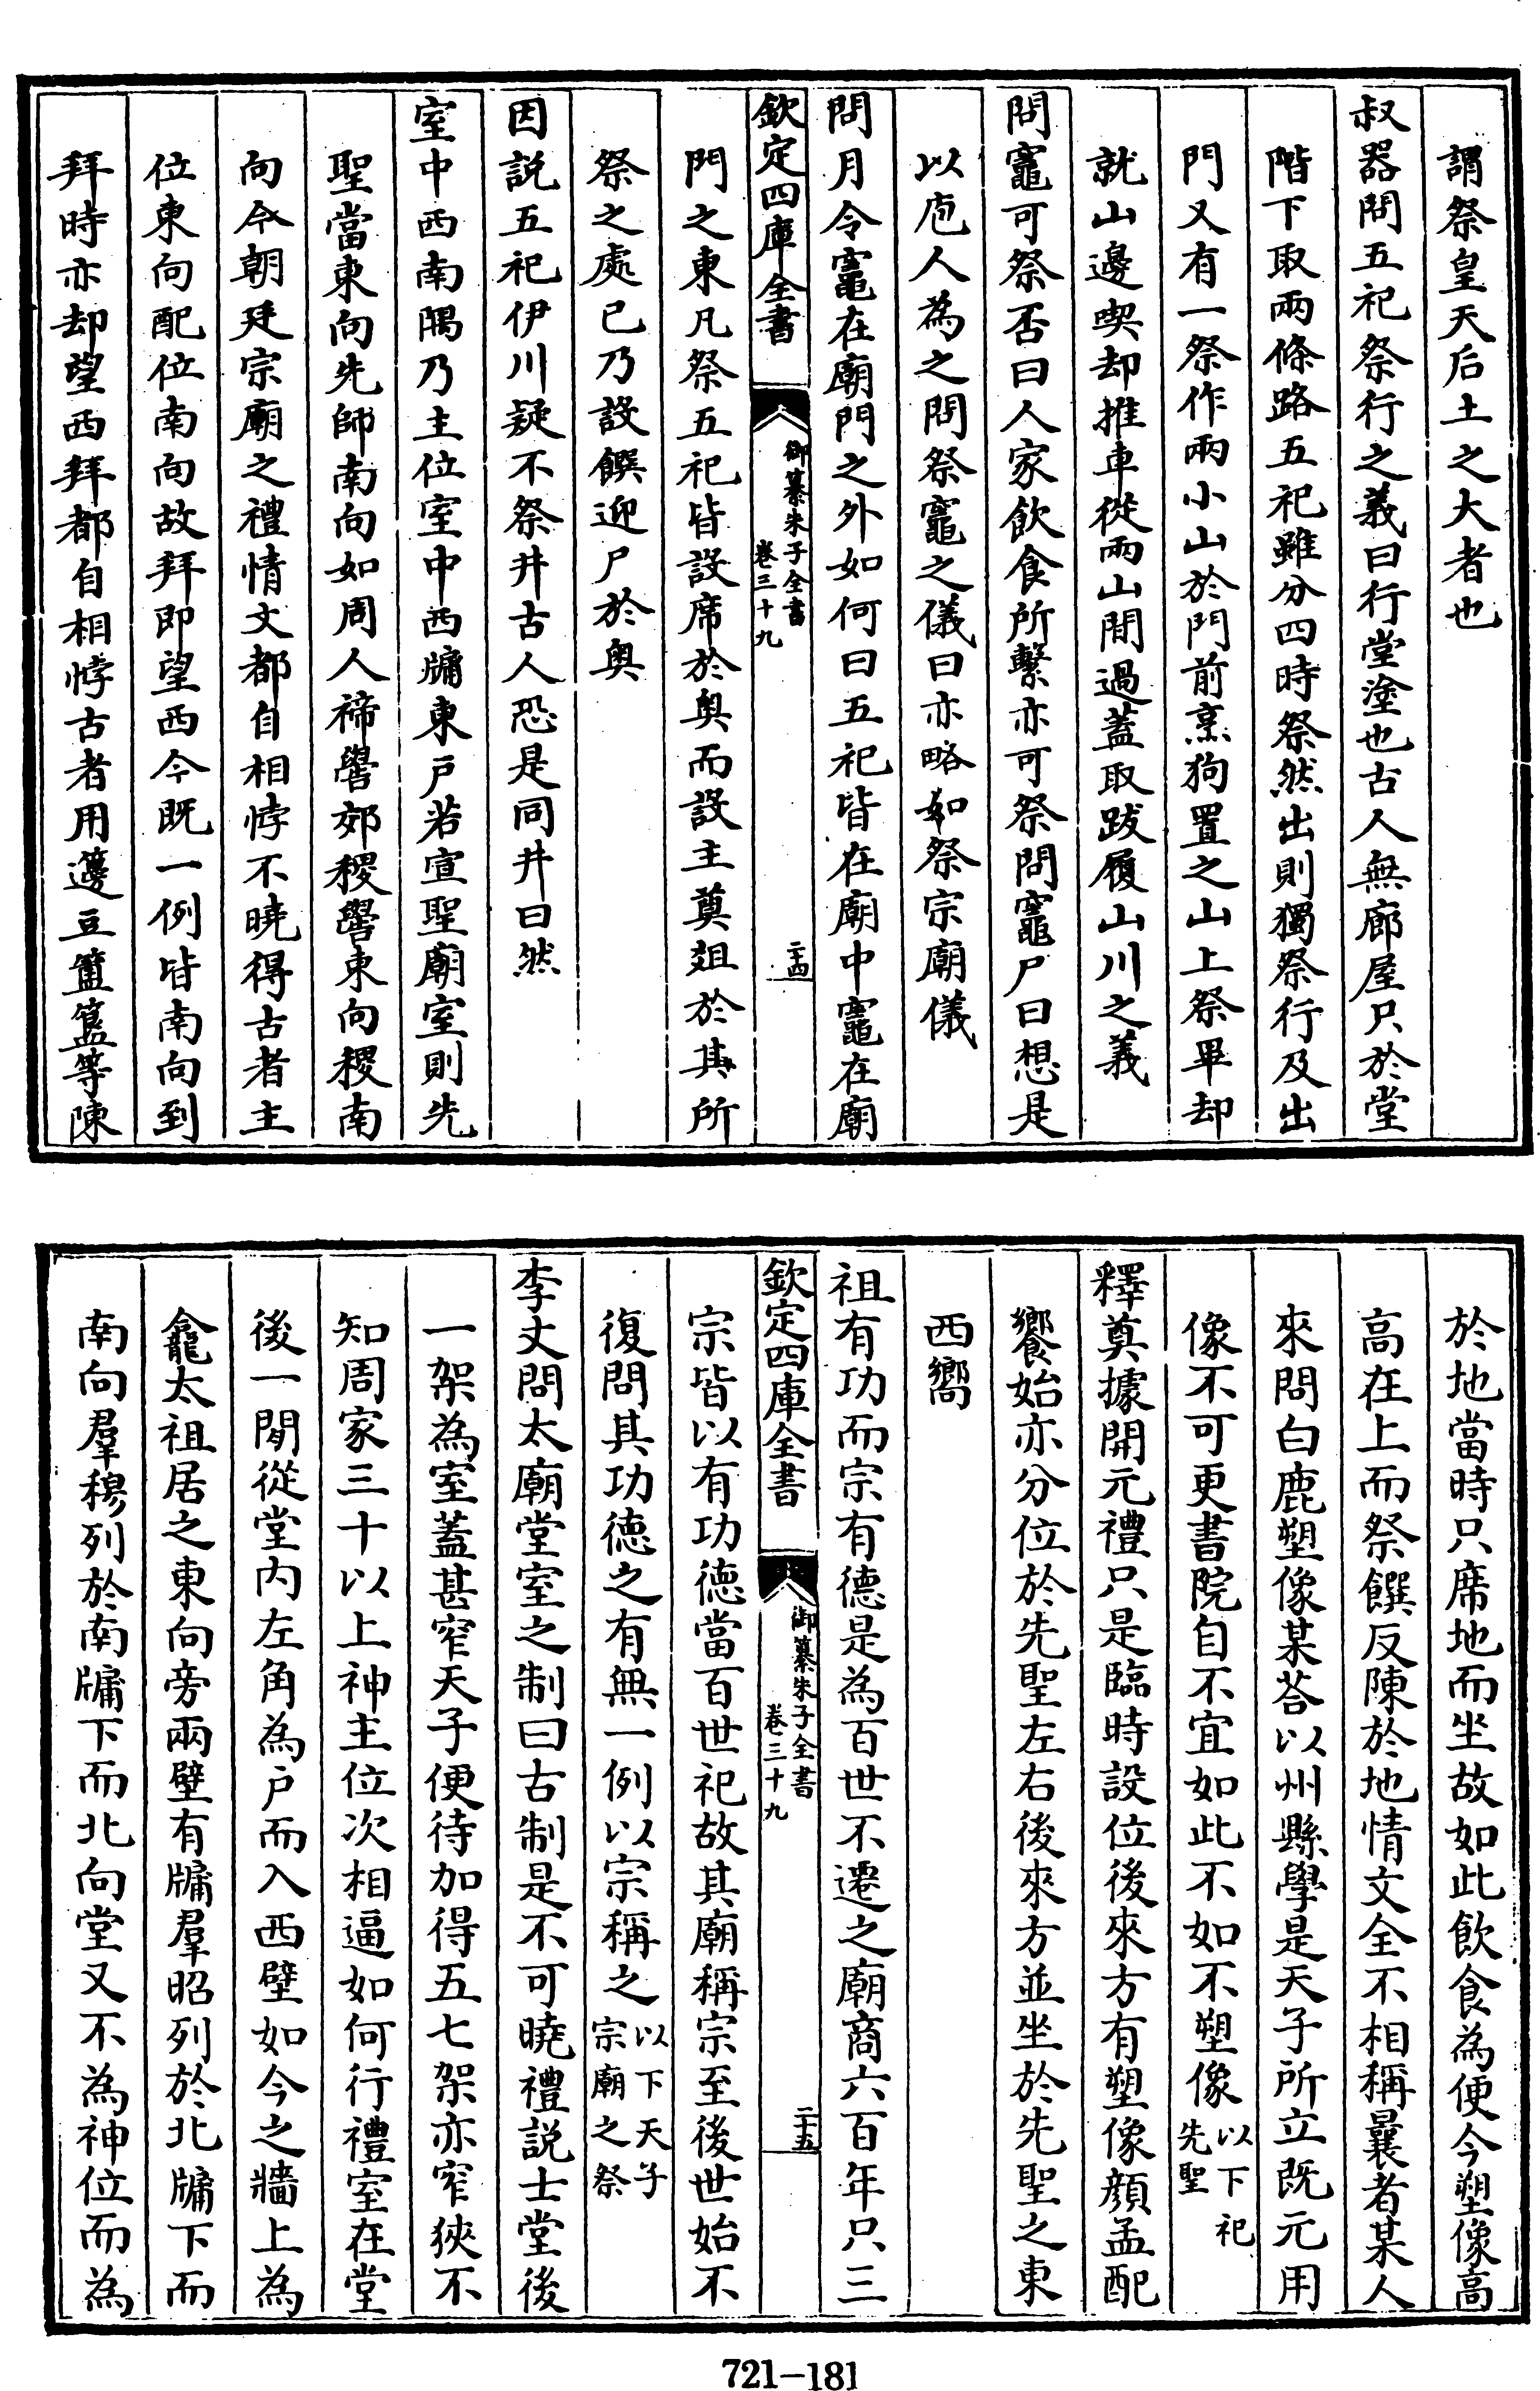 謂祭皇天后土之大者也
叔器問五祀祭行之義曰行堂塗也古人無廊屋只於堂
階下取兩條路五祀雖分四時祭然出則獨祭行及出
門又有一祭作兩小山於門前烹狗置之山上祭畢却
就山邊喫却推車從兩山間過蓋取跋履山川之義
問竈可祭否曰人家飲食所繫亦可祭問竈尸曰想是
以庖人為之問祭竈之儀曰亦略如祭宗廟儀
問月令竈在廟門之外如何曰五祀皆在廟中竈在廟
欽定四庫全書
御纂朱子全書
卷三十九
二十四
門之東凡祭五祀皆設席於奥而設主奠俎於其所
祭之處已乃設饌迎尸於奥
因説五祀伊川疑不祭井古人恐是同井曰然
室中西南隅乃主位室中西牖東戸若宣聖廟室則先
聖當東向先師南向如周人禘嚳郊稷嚳東向稷南
向今朝廷宗廟之禮情文都自相悖不曉得古者主
位東向配位南向故拜即望西今既一例皆南向到
拜時亦却望西拜都自相悖古者用籩豆簠簋等陳
於地當時只席地而坐故如此飲食為便今塑像高
高在上而祭饌反陳於地情文全不相稱曩者某人
來問白鹿塑像某荅以州縣學是天子所立既元用
像不可更書院自不宜如此不如不塑像以下祀
先聖
釋奠據開元禮只是臨時設位後來方有塑像顔孟配
饗始亦分位於先聖左右後來方並坐於先聖之東
西嚮
祖有功而宗有德是為百世不遷之廟商六百年只三
欽定四庫全書
御纂朱子全書
卷三十九
二十五
宗皆以有功德當百世祀故其廟稱宗至後世始不
復問其功德之有無一例以宗稱之以下天子
宗廟之祭
李丈問太廟堂室之制曰古制是不可曉禮説士堂後
一架為室蓋甚窄天子便待加得五七架亦窄狹不
知周家三十以上神主位次相逼如何行禮室在堂
後一間從堂内左角為戸而入西壁如今之牆上為
龕太祖居之東向旁兩壁有牖羣昭列於北牖下而
南向羣穆列於南牖下而北向堂又不為神位而為
721-181